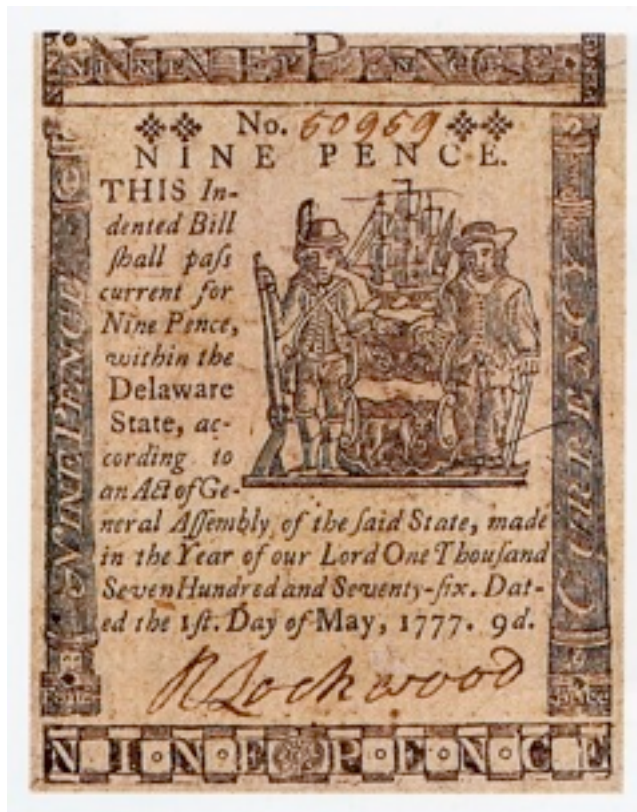 NINE PENCE
No. 60959
NINE PENCE.
THIS In-
dented Bill
ſhall paſs
current for
Nine Pence,
within the
Delaware
State, ac-
cording to
an Act of Ge-
neral Aſſembly of the ſaid State, made
in the Year of our Lord One Thouſand
Seven Hundred and Seventy-ſix. Dat-
ed the 1ſt. Day of May, 1777. 9d.
NINE PENCE
CURRENCY
R Lockwood
NINE PENCE